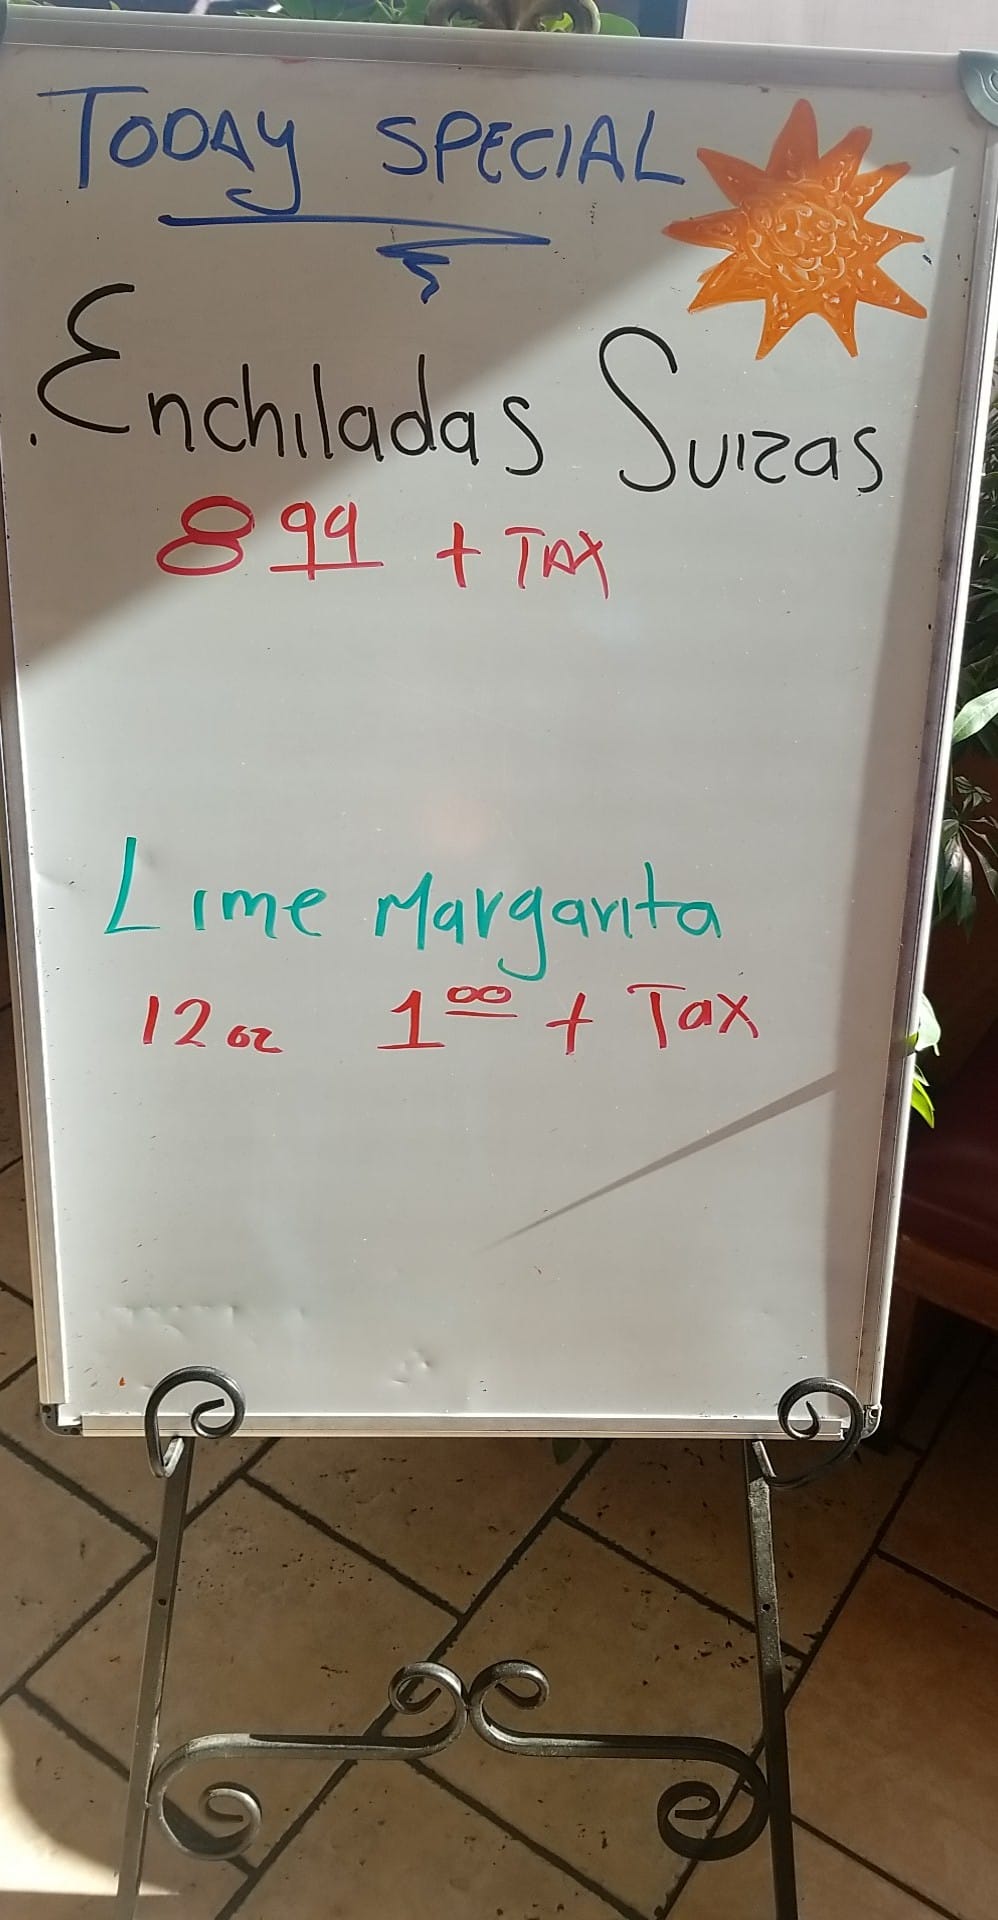 TODAY SPECIAL
Enchiladas Suizas
8 99 + TAX
Lime Margarita
12 oz 1 00 + Tax